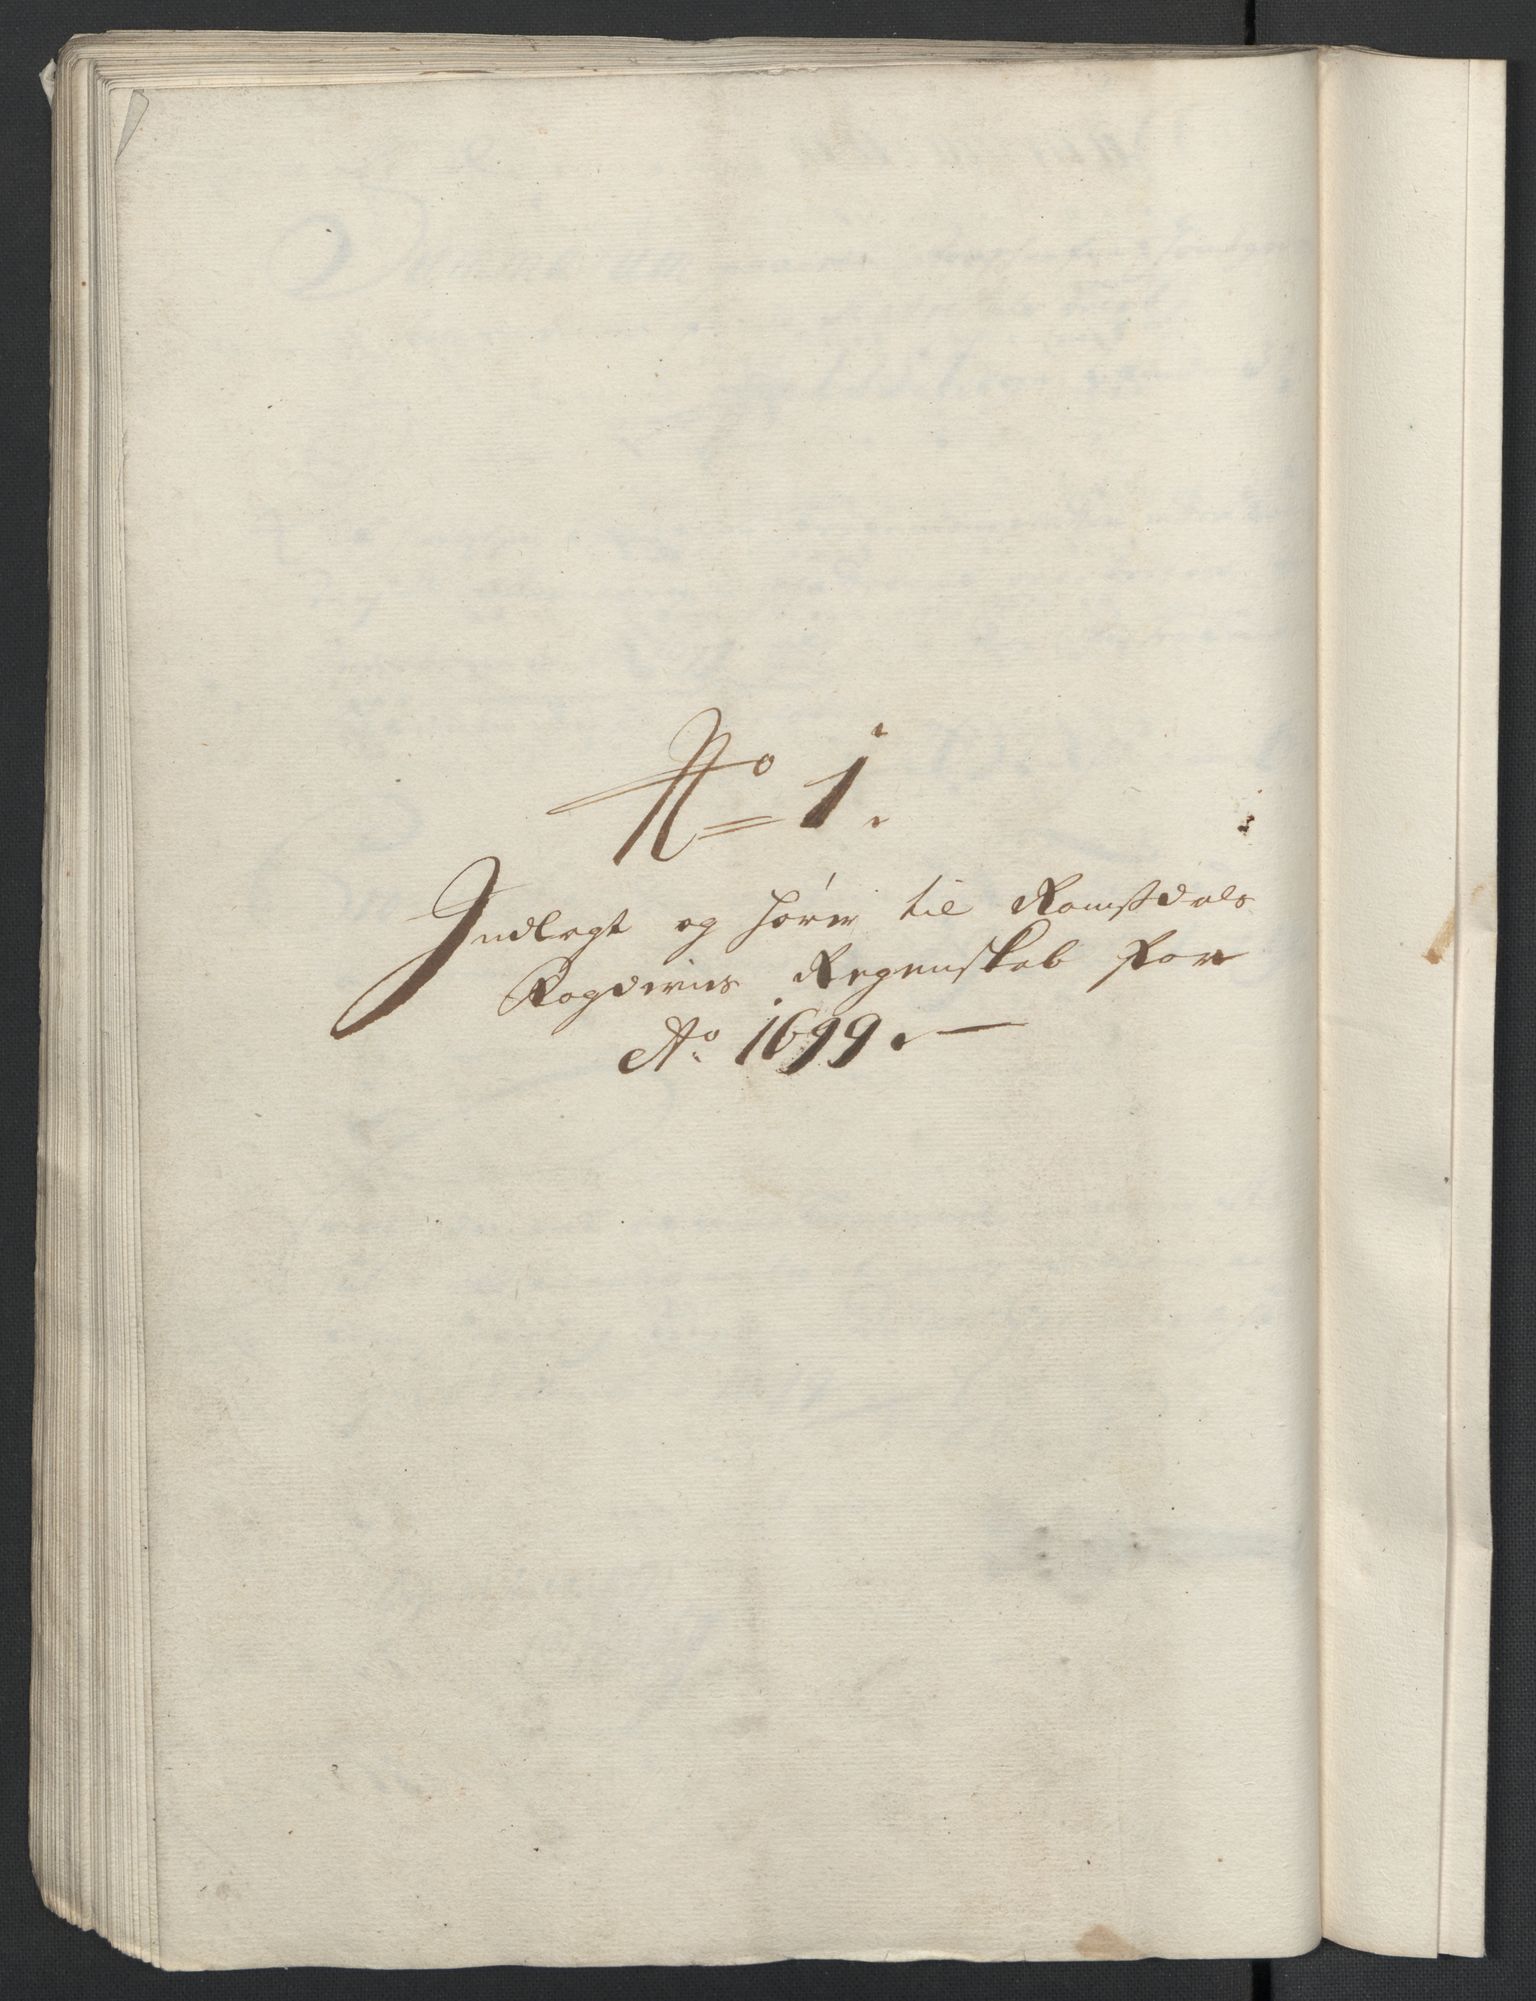 No 1.
Indlegt og hører til Romsdals
Fogderies Regenskab for
Ao 1699.